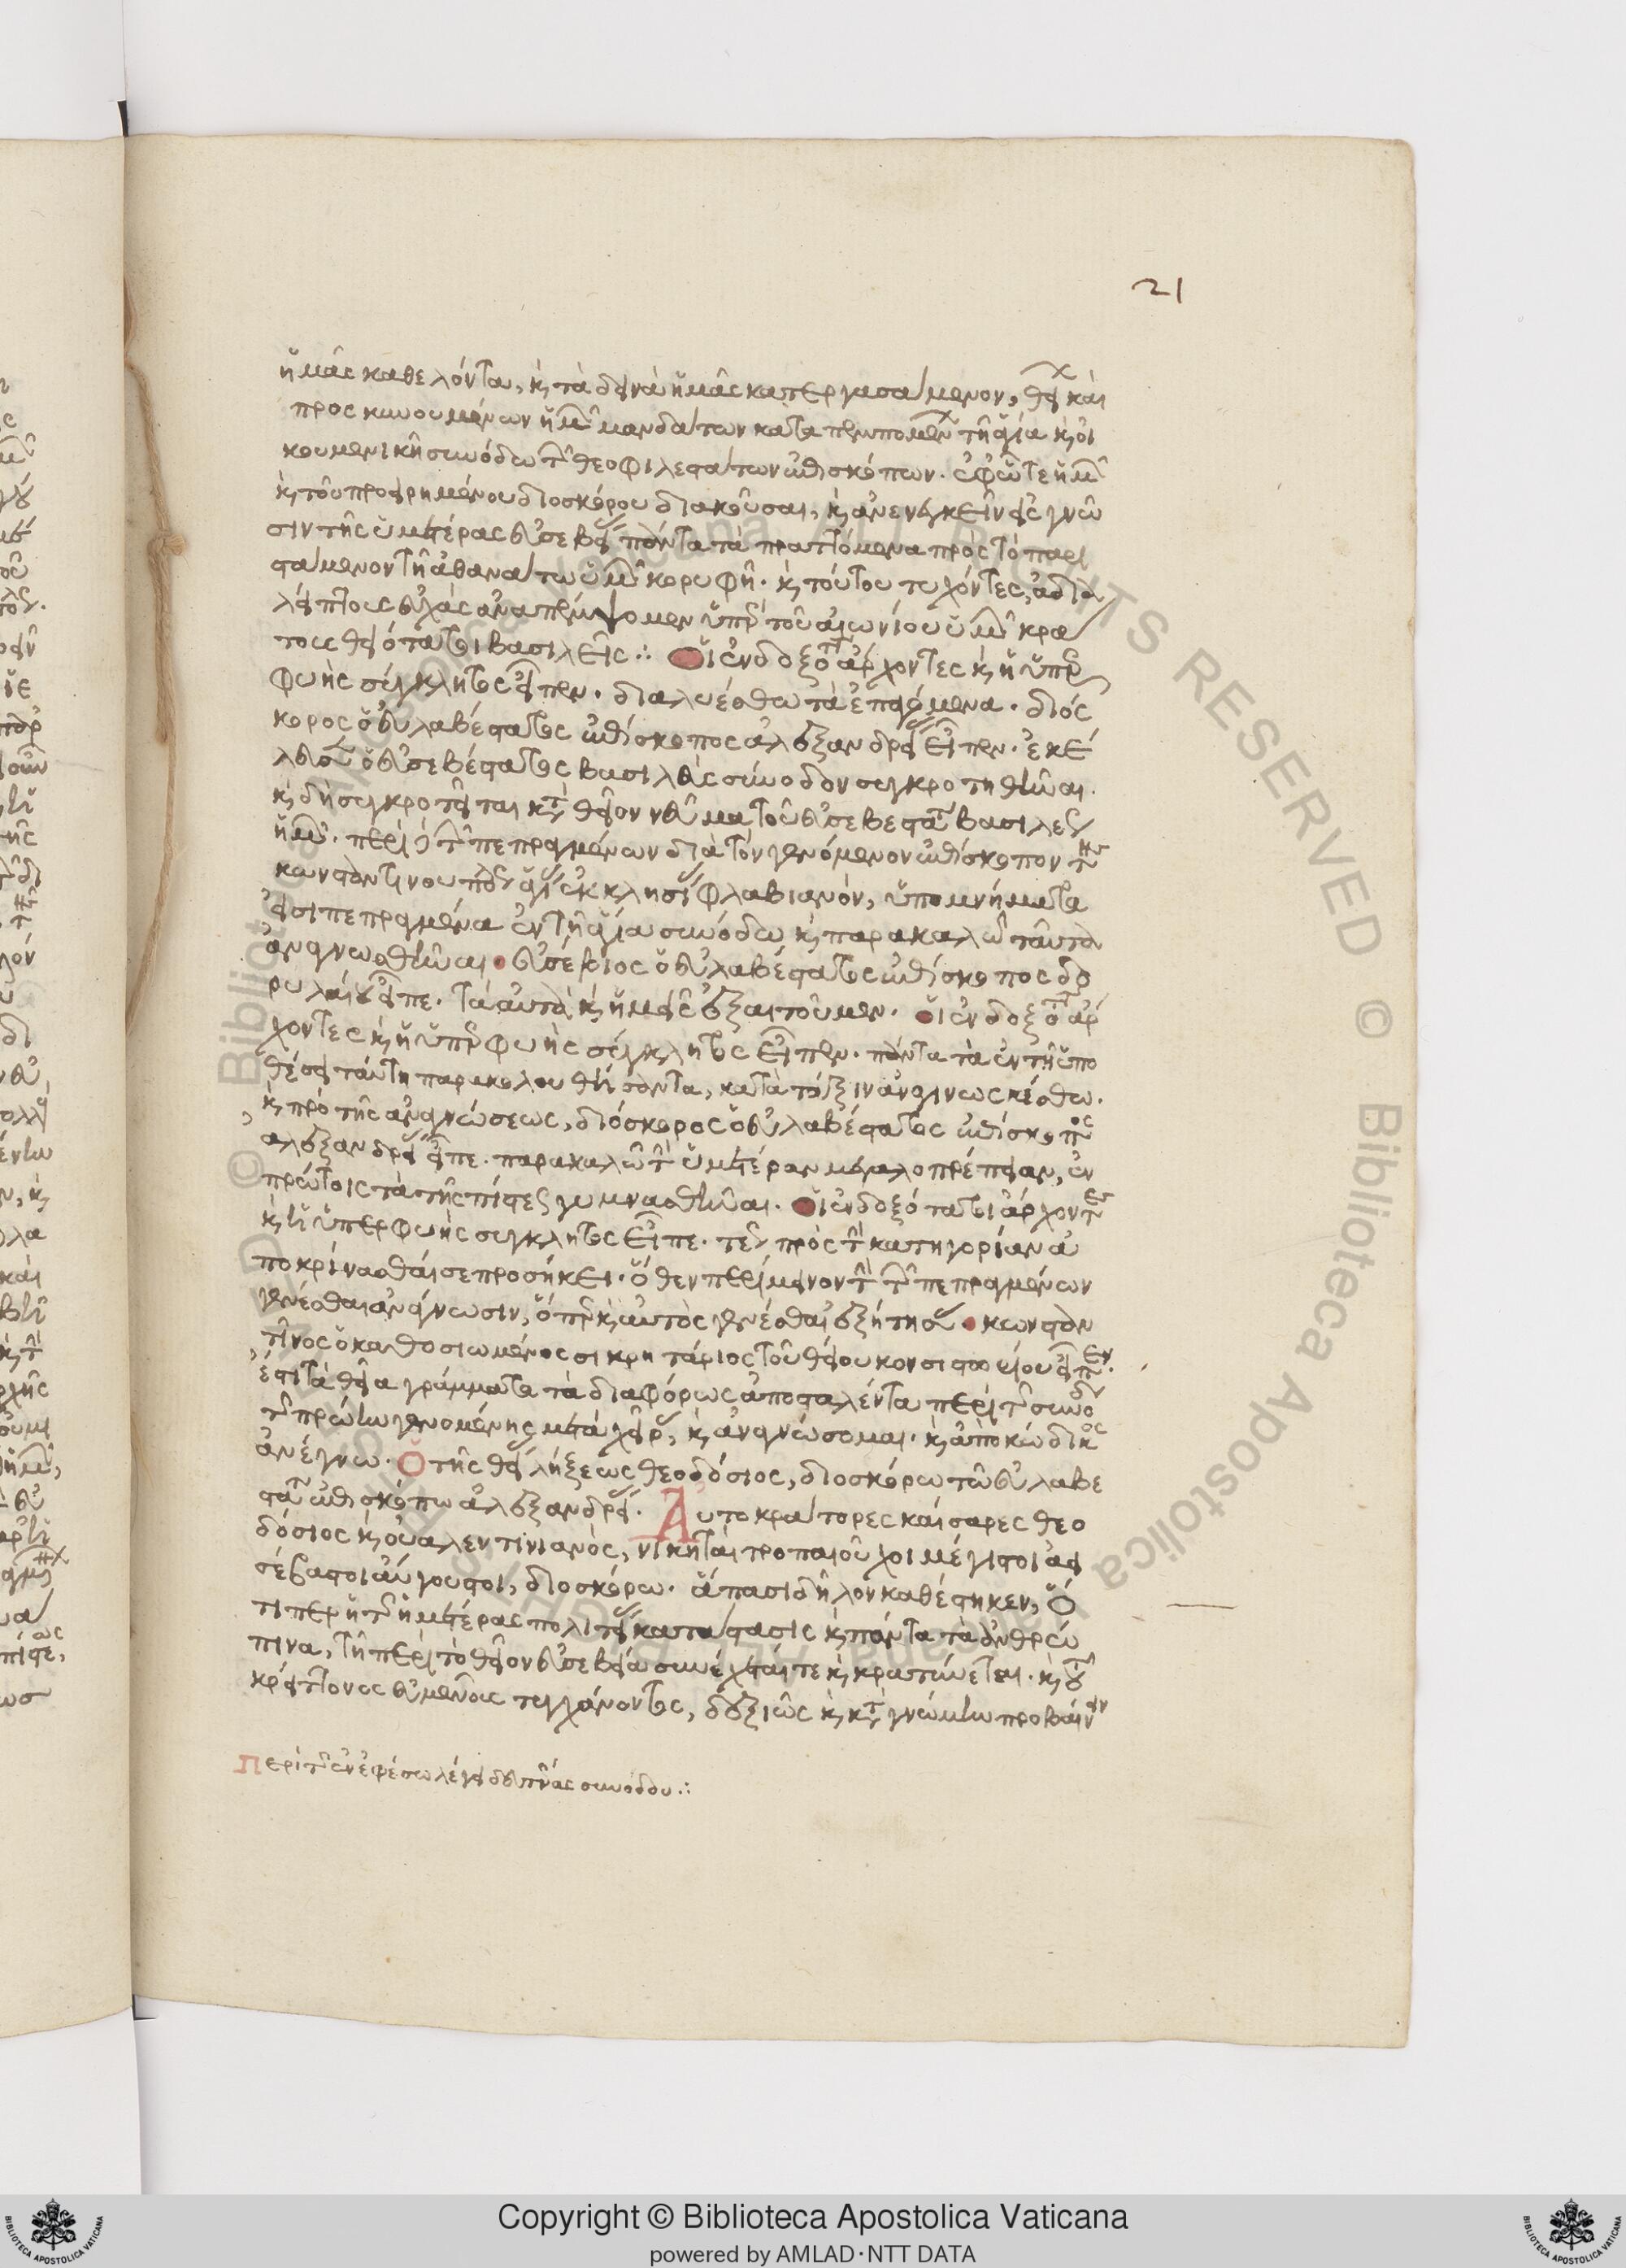 21
ἡμᾶς καθελόντα, κ τὰ δεινὰ ἡμᾶς κατεργασάμενον, θείων καὶ
προσκυνουμένων ὑμῶν μανδάτων καταπεμπομένων τῆ ἁγία κ οἰ
κουμενικῆ συνόδω τῶν θεοφιλεστάτων ἐπισκόπων. ἐφ' ὧτε ἡμῶν
κ τοῦ προειρημένου διοσκόρου διακοῦσαι, κ ἀνενεγκεῖν εἰς γνῶ
σιν τῆς ὑμετέρας εὐσεβείας πάντα τὰ πραττόμενα πρὸς τὸ παρι
στάμενον τῆ ἀθανάτω ὑμῶν κορυφῆ. κ τούτου τυχόντες, ἀδια
λείπτους εὐχὰς ἀναπέμψομεν ὑπὲρ τοῦ αἰωνίου ὑμῶν κρά
τους θειότατοι βασιλεῖς ∴ Οἱ ἐνδοξότατοι ἄρχοντες κ ἡ ὑπερ
φυὴς σύγκλητος εἶπεν. διαλυέσθω τὰ ἐπαγόμενα. διόσ
κορος ὁ εὐλαβέστατος ἐπίσκοπος ἀλεξανδρείας εἶπεν. ἐκέ
λευσεν ὁ εὐσεβέστατος βασιλεὺς σύνοδον συγκροτηθῆναι.
κ δὴ συγκροτεῖται κατὰ θεῖον νεῦμα τοῦ εὐσεβεστάτου βασιλέως
ἡμῶν. περὶ δὲ τῶν πεπραγμένων διὰ τὸν γενόμενον ἐπίσκοπον τῆς
κωνσταντινουπόλεως ἁγίας ἐκκλησίας φλαβιανόν, ὑπομνήματα
εἰσι πεπραγμένα ἐν τῆ ἁγία συνόδω κ παρακαλῶ ταῦτα
ἀναγνωσθῆναι • εὐσέβιος ὁ εὐλαβέστατος ἐπίσκοπος δο
ρυλαίου εἶπε. τὰ αὐτὰ κ ἡμεῖς ἐξαιτοῦμεν. Οἱ ἐνδοξότατοι ἄρ
χοντες κ ἡ ὑπερφυὴς σύγκλητος εἶπεν. πάντα τὰ ἐν τῆ ὑπο
θέσει ταύτη παρακολουθήσαντα, κατὰ τάξιν ἀναγινωσκέσθω.
κ πρὸ τῆς ἀναγνώσεως, διόσκορος ὁ εὐλαβέστατος ἐπίσκοπος
αλεξανδρείας εἶπε. παρακαλῶ τὴν ὑμετέραν μεγαλοπρέπειαν, ἐν
πρώτοις τὰ τῆς πίστεως γυμνασθῆναι. Οἱ ἐνδοξότατοι ἄρχοντες
κ ἡ ὑπερφυὴς σύγκλητος εἶπε. τέως πρὸς τὴν κατηγορίαν ἀ
ποκρίνασθαί σε προσήκει. ὅθεν περίμεινον τὴν τῶν πεπραγμένων
γενέσθαι ἀνάγνωσιν, ὅπερ κ αὐτὸς γενέσθαι ἐξήτησας • κωνσταν
τῖνος ὁ καθοσιωμένος σικρητάριος τοῦ θείου κονσιστωρίου εἶπεν.
ἐστὶ τὰ θεῖα γράμματα τὰ διαφόρως ἀποσταλέντα περὶ τῆς συνόδου
τῆς πρώην γενομένης μετὰ χεῖρας, κ ἀναγνώσομαι. κ ἀπὸ κώδικος
ἀνέγνω. Ὁ τῆς θείας λήξεως θεοδόσιος, διοσκόρω τῶ εὐλαβε
στάτω ἐπισκόπω ἀλεξανδρείας. Αὐτοκράτορες καίσαρες θεο
δόσιος κ οὐαλεντινιανὸς, νικηταὶ τροπαιοῦχοι μέγιστοι ἀεὶ
σέβαστοι αὔγουστοι, διοσκόρω. ἅπασι δῆλον καθέστηκεν, ὅ
τι περ ἡ τῆς ἡμετέρας πολιτείας κατάστασις κ πάντα τὰ ἀνθρώ
πινα, τῆ περὶ τὸ θεῖον εὐσεβεία συνέχεταί τε κ κρατύνεται. κ τοῦ
κρείττονος εὐμενοῦς τυγχάνοντος, δεξιῶς κ κατὰ γνώμην προβαίνειν
Περὶ τῆς ἐν ἐφέσω λέγει δευτέρας συνόδου ∴